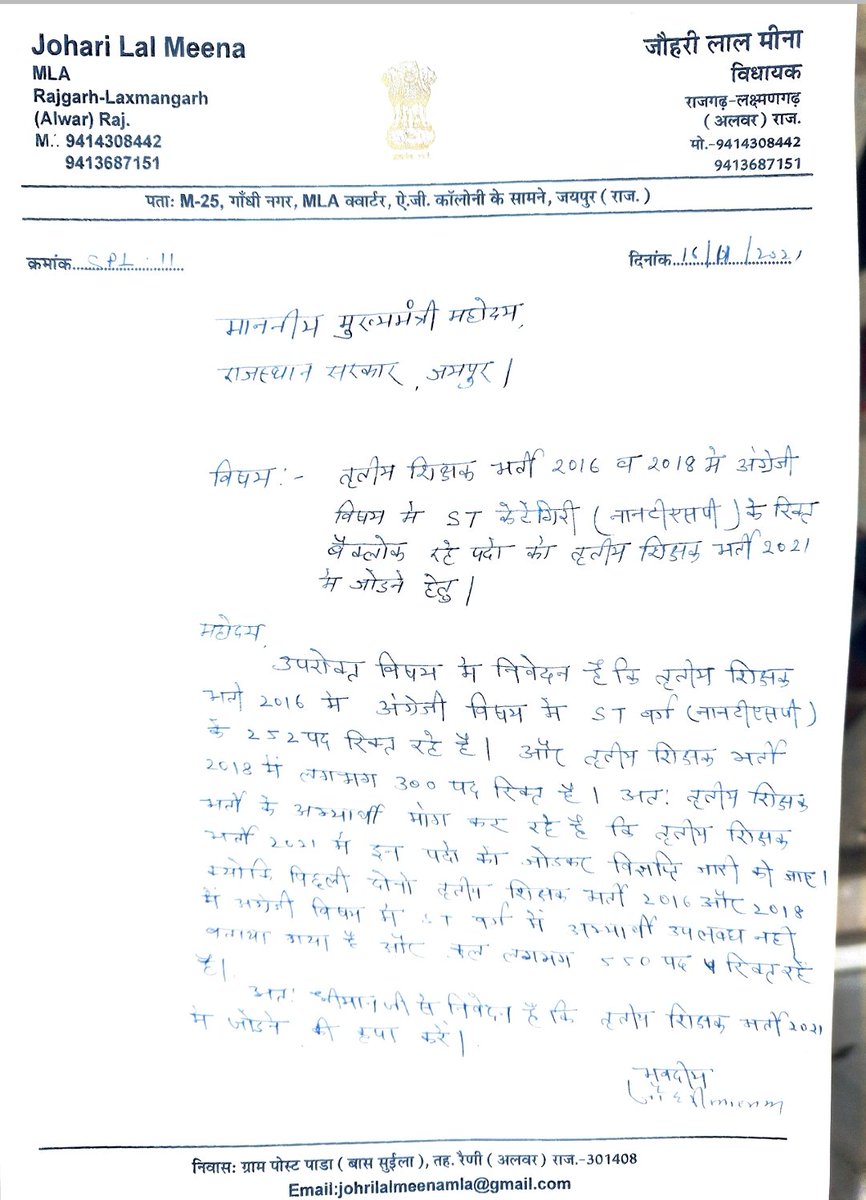 Johari Lal Meena
MLA
Rajgarh-Laxmangarh
(Alwar) Raj.
M.: 9414308442
9413687151
जौहरी लाल मीना
विधायक
राजगढ़-लक्ष्मणगढ़
( अलवर ) राज.
मो.-9414308442
9413687151
पताः M-25, गाँधी नगर, MLA क्वार्टर, ऐ.जी. कॉलोनी के सामने, जयपुर ( राज. )
क्रमांक SPL-11
दिनांक /11/2021
माननीय मुख्यमंत्री महोदय,
राजस्थान सरकार, जयपुर।
विषय:- तृतीय शिक्षक भर्ती 2016 व 2018 मे अंग्रेजी
विषय मे ST केटेगिरी (नानटीएसपी) के रिक्त
बैकलोक रहे पदो को तृतीय शिक्षक भर्ती 2021
मे जोडने हेतु।
महोदय,
उपरोक्त विषय मे निवेदन है कि तृतीय शिक्षक
भर्ती 2016 मे अंग्रेजी विषय मे ST वर्ग (नानटीएसपी)
के 252 पद रिक्त रहे है। और तृतीय शिक्षक भर्ती
2018 मे लगभग 300 पद रिक्त है। अत: तृतीय शिक्षक
भर्ती के अभ्यार्थी मांग कर रहे है कि तृतीय शिक्षक
भर्ती 2021 मे इन पदो को जोडकर विज्ञप्ति जारी की जाए।
क्योकि पिछली दोनो तृतीय शिक्षक भर्ती 2016 और 2018
मे अंग्रेजी विषय मे ST वर्ग मे अभ्यार्थी उपलब्ध नही
बताया गया है और कुल लगभग 550 पद रिक्त रहे
है।
अत: श्रीमान जी से निवेदन है कि तृतीय शिक्षक भर्ती 2021
मे जोडने की कृपा करें।
भवदीय
निवासः ग्राम पोस्ट पाडा ( बास सुईला ), तह. रैणी ( अलवर ) राज.-301408
Email:johrilalmeenamla@gmail.com